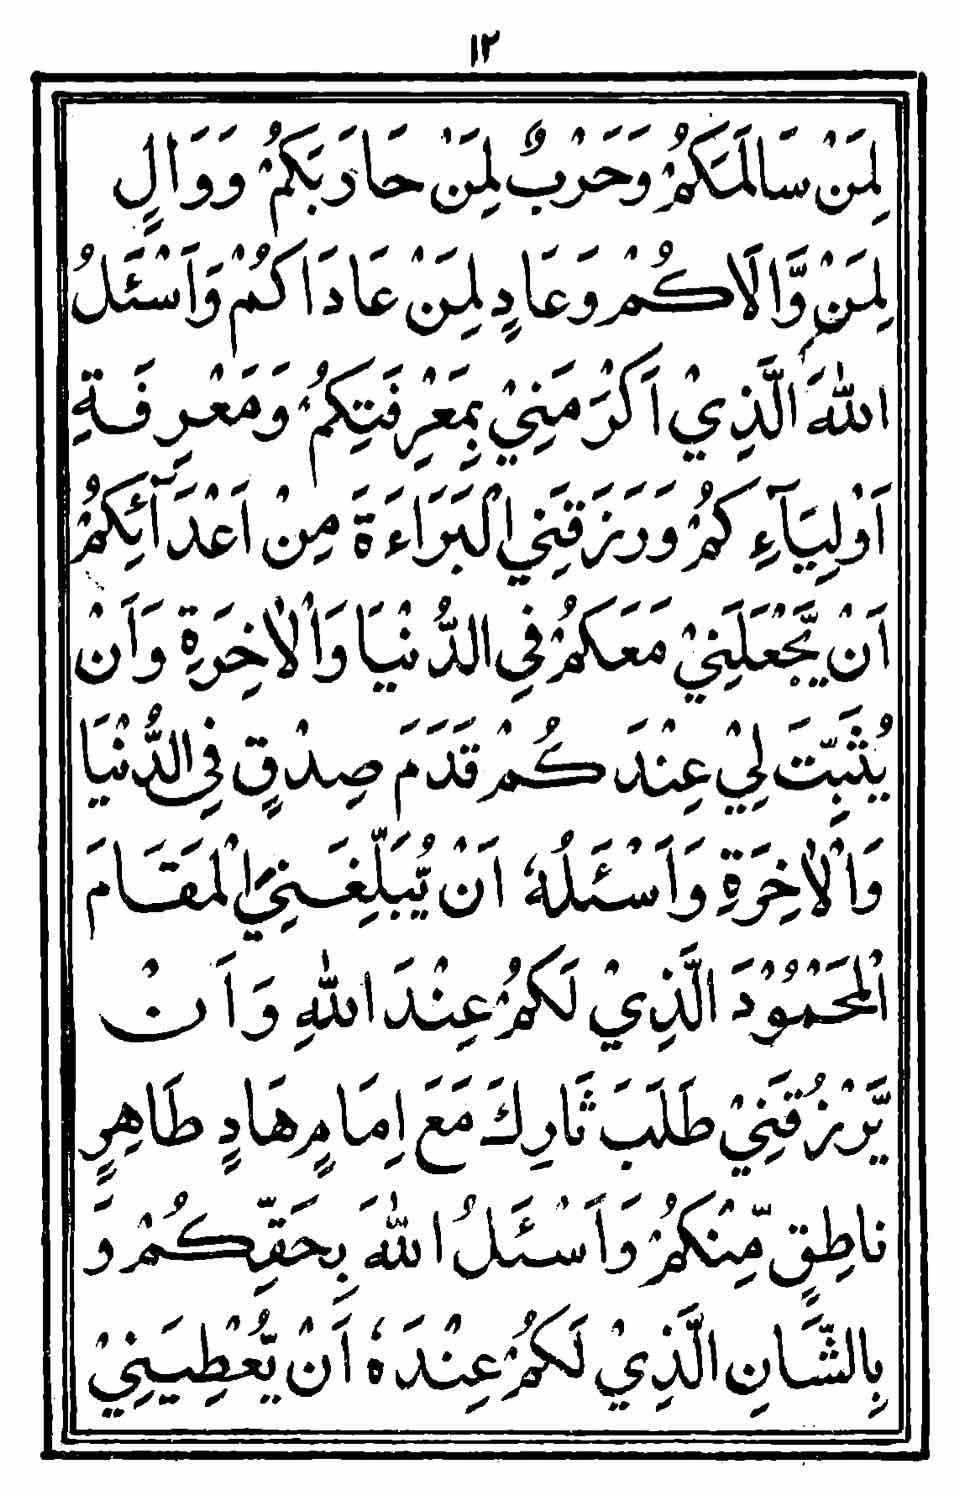 ١٢
لِمَنْ سَالَمَكُمْ وَحَرْبٌ لِمَنْ حَارَبَكُمْ وَوَالٍ
لِمَنْ وَّالَاكُمْ وَعَادٍ لِمَنْ عَادَاكُمْ وَاَسْئَلُ
اللهَ الَّذِيْ اَكْرَمَنِيْ بِمَعْرِفَتِكُمْ وَمَعْرِفَةِ
اَوْلِيَآءِكُمْ وَرَزَقَنِي الْبَرَاءَةَ مِنْ اَعْدَآئِكُمْ
اَنْ يَّجْعَلَنِيْ مَعَكُمْ فِي الدُّنْيَا وَالْاٰخِرَةِ وَاَنْ
يُثَبِّتَ لِيْ عِنْدَكُمْ قَدَمَ صِدْقٍ فِي الدُّنْيَا
وَالْاٰخِرَةِ وَاَسْئَلُهٗ اَنْ يُّبَلِّغَنِيَ الْمَقَامَ
الْمَحْمُوْدَ الَّذِيْ لَكُمْ عِنْدَ اللهِ وَاَنْ
يَّرْزُقَنِيْ طَلَبَ ثَارِكَ مَعَ اِمَامٍ هَادٍ طَاهِرٍ
نَاطِقٍ مِّنْكُمْ وَاَسْئَلُ اللهَ بِحَقِّكُمْ وَ
بِالشَّانِ الَّذِيْ لَكُمْ عِنْدَهٗ اَنْ يُّعْطِيَنِيْ